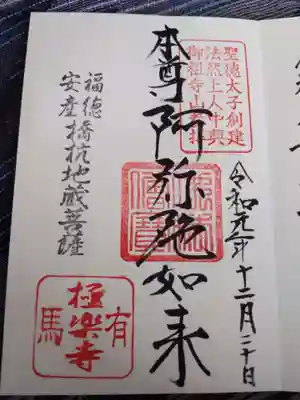 聖徳太子創建
法然上人中興
本尊阿弥陀如来
令和元年十二月二十日
福徳
安産橋杭地蔵菩薩
有馬
極楽寺